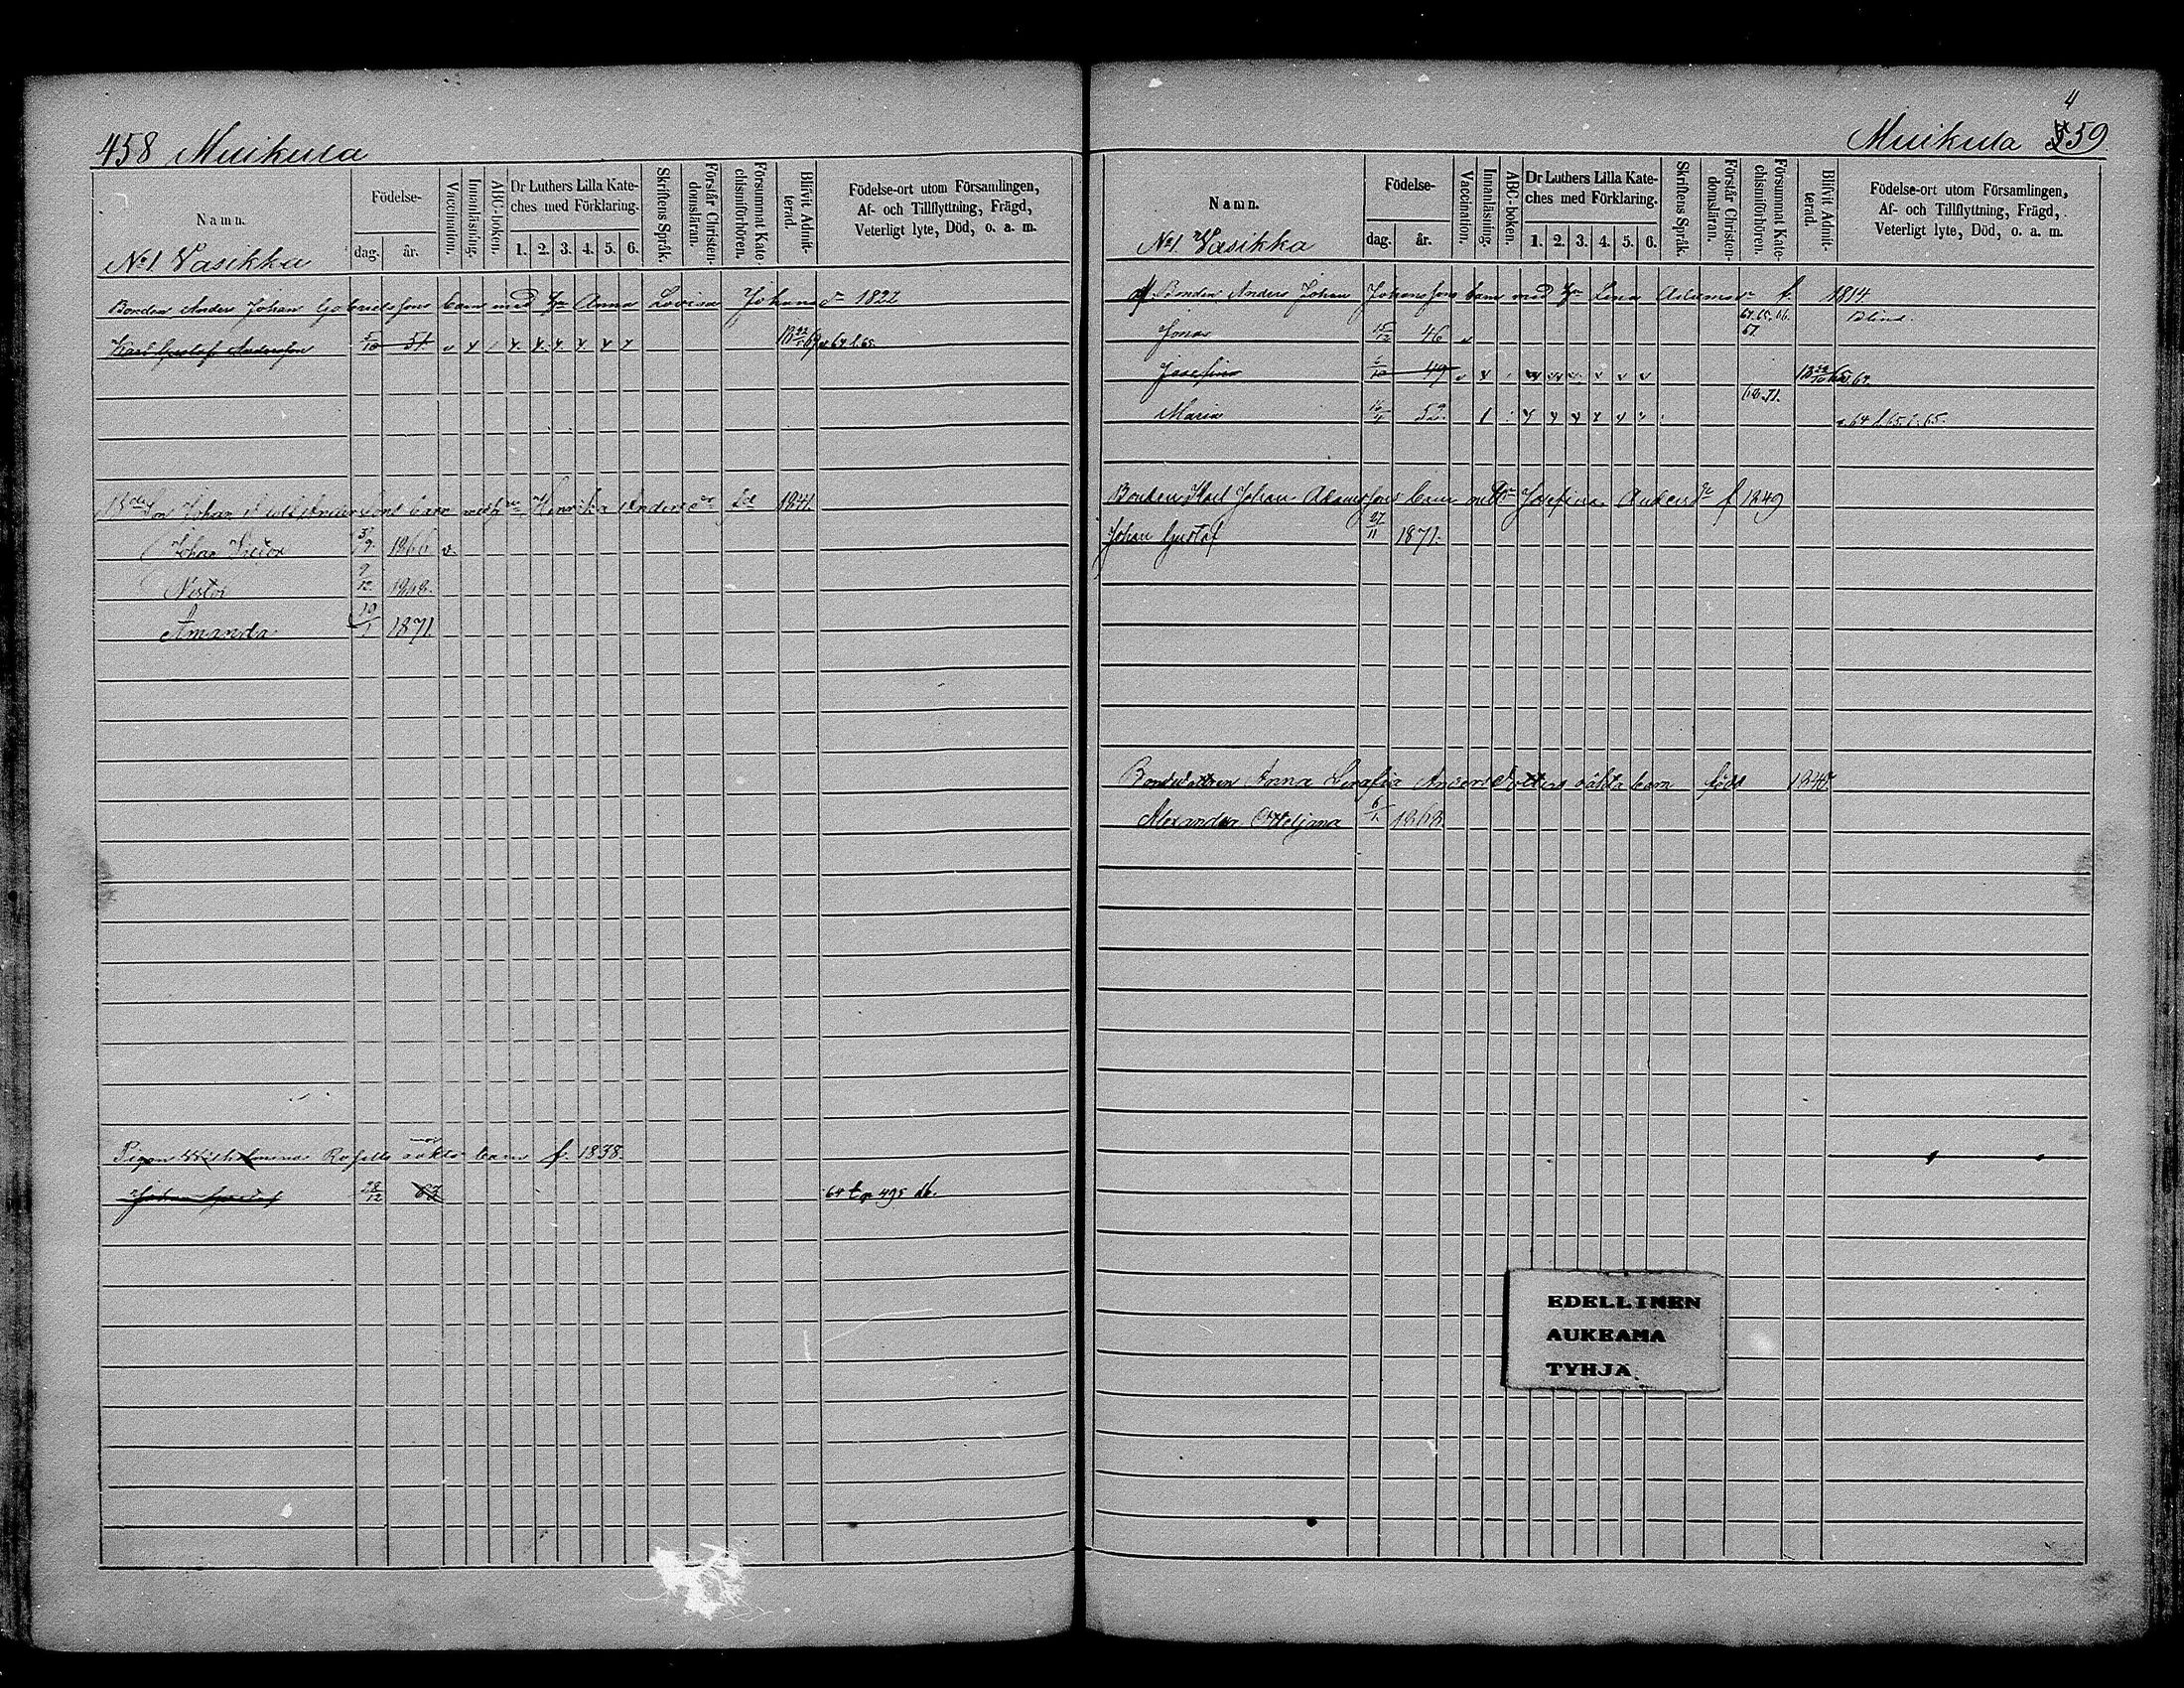 458 Muikula
Namn.
Födelse-
dag.
år.
Vaccination.
Innanläsning.
ABC-boken.
Dr Luthers Lilla Kate-
ches med Förklaring.
1. 2. 3. 4. 5. 6.
Skriftens Språk.
Förstår Christen-
domsläran.
Försummat Kate-
chismiförhören.
Blifvit Admit-
terad.
Födelse-ort utom Församlingen,
Af- och Tillflyttning, Frägd,
Veterligt lyte, Död, o. a. m.
No 1 Vasikka
Bonden Anders Johan Gabrielssons barn med Hu Anna Lovisa Johansdr 1822
Karl Gustaf Andersson 5/10 51
Johan Victor 3/9 1866 v.
Nestor 9/12
Amanda 19/1 1871
Pigan Wilhelmina Rosells oäkta barn f. 1838
Johan Gustaf 28/12 63 64 t. p 495 db.
Muikula 459
4
Namn.
Födelse-
dag.
år.
Vaccination.
Innanläsning.
ABC-boken.
Dr Luthers Lilla Kate-
ches med Förklaring.
1. 2. 3. 4. 5. 6.
Skriftens Språk.
Förstår Christen-
domsläran.
Försummat Kate-
chismiförhören.
Blifvit Admit-
terad.
Födelse-ort utom Församlingen,
Af- och Tillflyttning, Frägd,
Veterligt lyte, Död, o. a. m.
No 1. Vasikka
Bonden Anders Johan Johanssons barn med Hu Lena Adamsdr f. 1814
Jonas 15/12 46 64. 65. 66. 67. Blind.
Josefina 49
Maria 68. 71. 64 f. 65. f. 65.
Bonden Karl Johan Adamssons barn med Hu Josefina Andersdr f 1849
Johan Gustaf 27/11 1871
Bondedottren Anna Serafia Andersdotters oäkta barn född
Alexandra Otteljana 6/1. 1868
EDELLINEN
AUKEAMA
TYHJÄ.